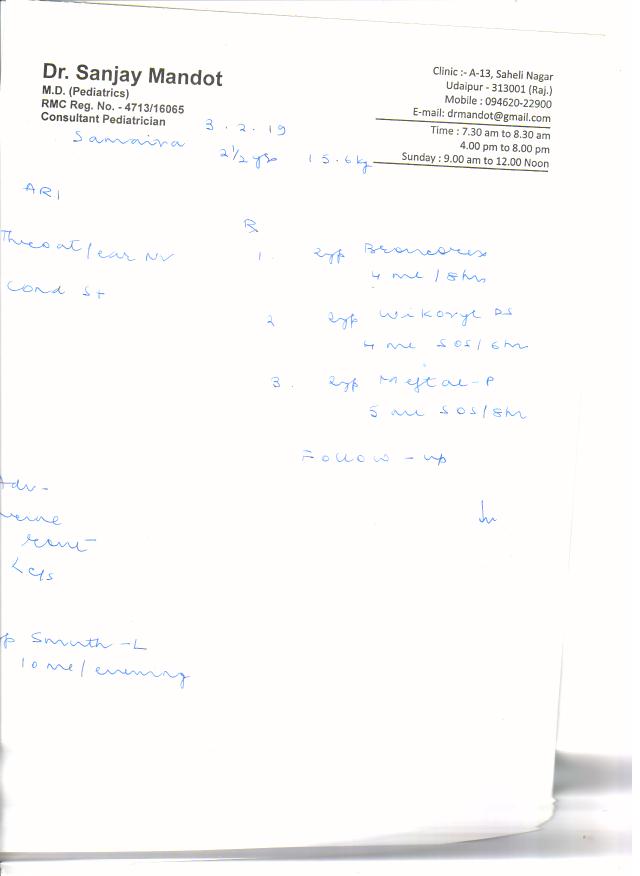 Dr. Sanjay Mandot
M.D. (Pediatrics)
RMC Reg. No. - 4713/16065
Consultant Pediatrician
Clinic :- A-13, Saheli Nagar
Udaipur - 313001 (Raj.)
Mobile : 094620-22900
E-mail: drmandot@gmail.com
Time : 7.30 am to 8.30 am
4.00 pm to 8.00 pm
Sunday : 9.00 am to 12.00 Noon
3.2.19
Samaira
2 1/2 yrs 15.6 kg
ARI
Throat/ear NV
Cond St
R
1. Syp Broncorex
4 ml / 8hr
2 Syp Wikoryl DS
4 ml SOS/6hr
3. Syp Meftal-P
5 ml SOS/8hr
Follow-up
Adv-
urine
rout
c/s
Smuth-L
10 ml/evening